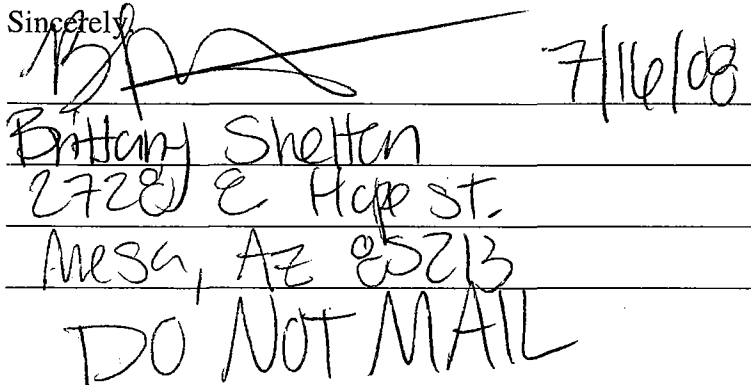 Sincerely,
7/16/08
Brittany Shelton
2728 E Hope st.
Mesa, Az 85213
DO NOT MAIL